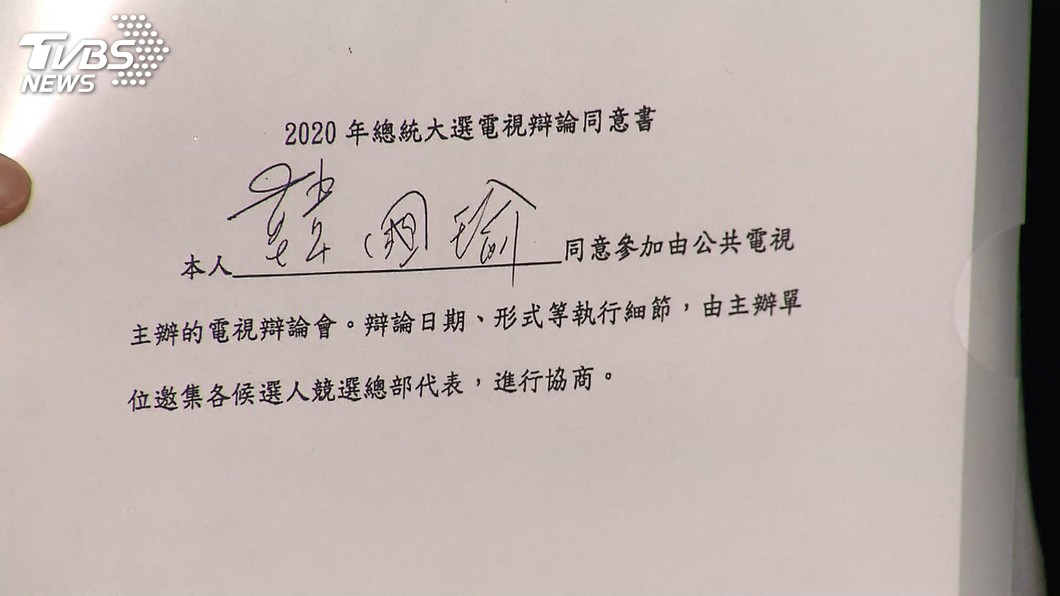 TVBS
NEWS
2020 年總統大選電視辯論同意書
本人韓國瑜同意參加由公共電視
主辦的電視辯論會。辯論日期、形式等執行細節，由主辦單
位邀集各候選人競選總部代表，進行協商。